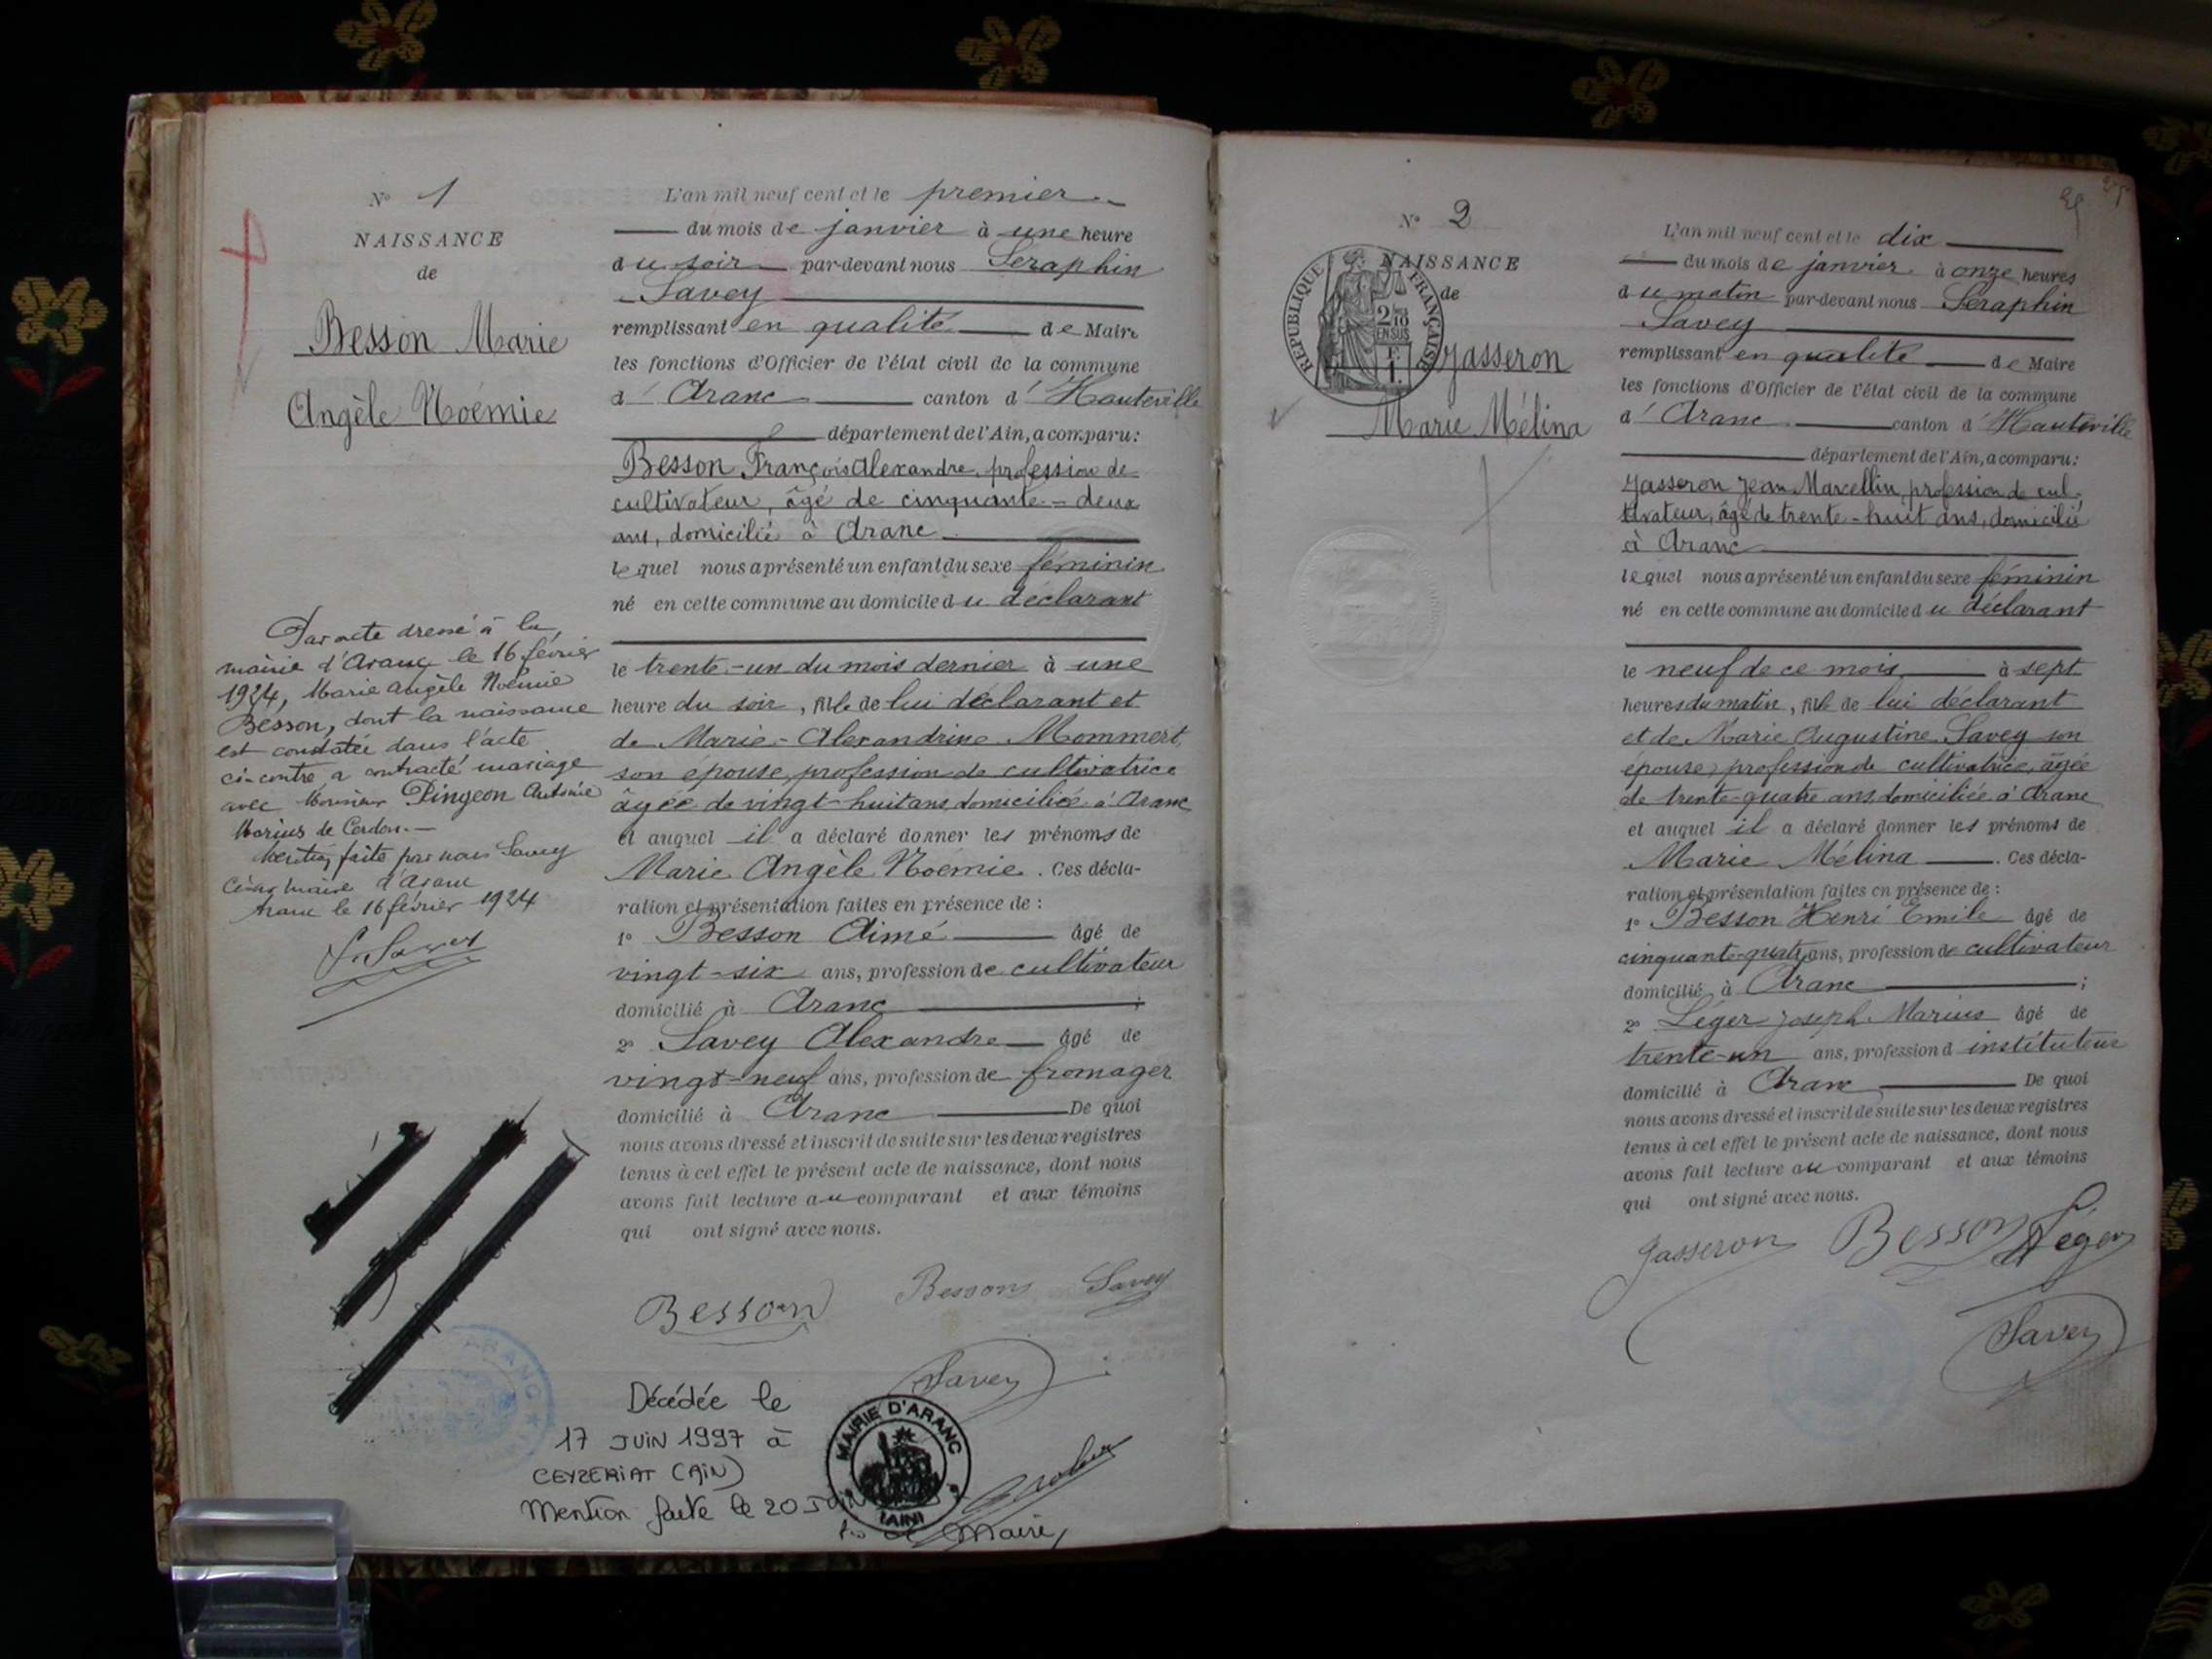 N° 1
NAISSANCE
de
Besson Marie
Angèle Noémie
Par acte dressé à la
mairie d'Aranc le 16 février
1924, Marie Angèle Noémie
Besson, dont la naissance
est constatée dans l'acte
ci-contre, a contracté mariage
avec Monsieur Pingeon Antonie
Marius de Cerdon.—
Mention faite par nous Savey
maire d'Aranc
Aranc le 16 février 1924
L'an mil neuf cent et le premier
du mois de janvier à une heure
du soir par-devant nous Seraphin
Savey
remplissant en qualité de Maire
les fonctions d'Officier de l'état civil de la commune
d'Aranc canton d'Hauteville
département de l'Ain, a comparu:
Besson François Alexandre, profession de
cultivateur, âgé de cinquante-deux
ans, domicilié à Aranc
lequel nous a présenté un enfant du sexe féminin
né en cette commune au domicile du déclarant
le trente-un du mois dernier à une
heure du soir, fille de lui déclarant et
de Marie-Alexandrine Mommert,
son épouse, profession de cultivatrice
âgée de vingt-huit ans, domiciliée à Aranc
et auquel il a déclaré donner les prénoms de
Marie Angèle Noémie. Ces décla-
ration et présentation faites en présence de :
1° Besson Aimé âgé de
vingt-six ans, profession de cultivateur
domicilié à Aranc ;
2° Savey Alexandre âgé de
vingt-neuf ans, profession de fromager
domicilié à Aranc De quoi
nous avons dressé et inscrit de suite sur les deux registres
tenus à cet effet le présent acte de naissance, dont nous
avons fait lecture au comparant et aux témoins
qui ont signé avec nous.
Besson Besson Savey
Savey
Décédée le
17 JUIN 1997 à
CEYZERIAT (AIN)
Mention faite le 20 JUIN
Le Maire,
MAIRIE D'ARANC
(AIN)
N° 2
NAISSANCE
de
REPUBLIQUE FRANÇAISE
2/10
EN SUS
Jasseron
Marie Mélina
L'an mil neuf cent et le dix
du mois de janvier à onze heures
du matin par-devant nous Séraphin
Savey
remplissant en qualité de Maire
les fonctions d'Officier de l'état civil de la commune
d'Aranc canton d'Hauteville
département de l'Ain, a comparu:
Jasseron Jean Marcellin, profession de cul-
tivateur, âgé de trente-huit ans, domicilié
à Aranc
lequel nous a présenté un enfant du sexe féminin
né en cette commune au domicile du déclarant
le neuf de ce mois à sept
heures du matin, fille de lui déclarant
et de Marie Augustine Savey son
épouse, profession de cultivatrice, âgée
de trente-quatre ans, domiciliée à Aranc
et auquel il a déclaré donner les prénoms de
Marie Mélina. Ces décla-
ration et présentation faites en présence de :
1° Besson Henri Emile âgé de
cinquante-quatre ans, profession de cultivateur
domicilié à Aranc ;
2° Léger Joseph Marius âgé de
trente-un ans, profession d'instituteur
domicilié à Aranc De quoi
nous avons dressé et inscrit de suite sur les deux registres
tenus à cet effet le présent acte de naissance, dont nous
avons fait lecture au comparant et aux témoins
qui ont signé avec nous.
Jasseron Besson Léger
Savey